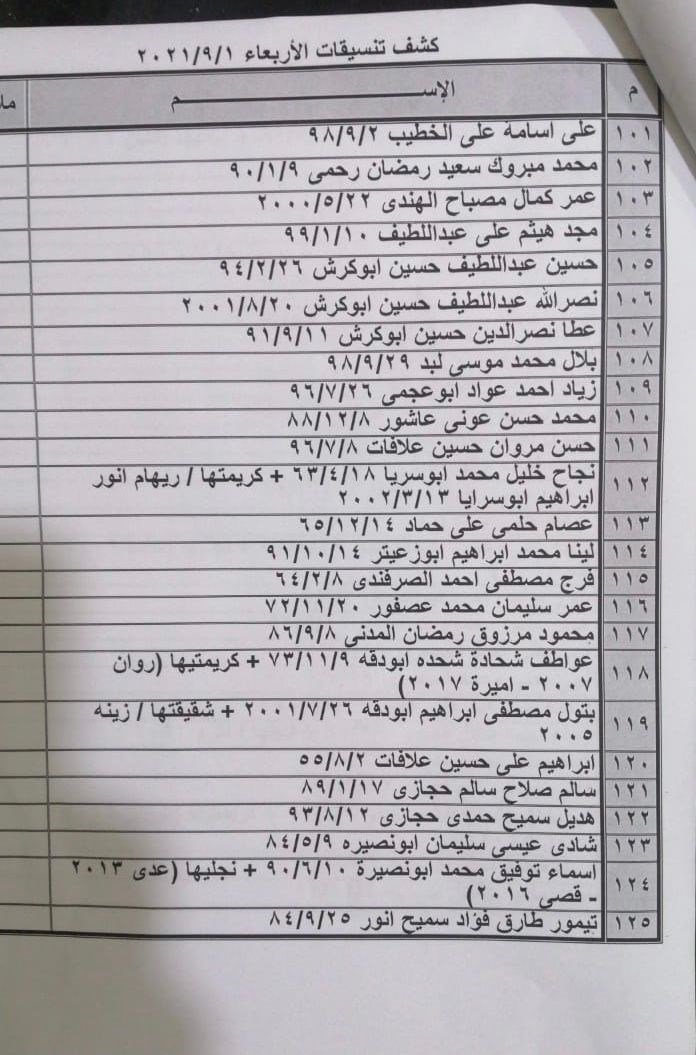 كشف تنسيقات الأربعاء ٢٠٢١/٩/١
م الإســـــــــم
١٠١ على اسامة على الخطيب ٩٨/٩/٢
١٠٢ محمد مبروك سعيد رمضان رحمى ٩٠/١/٩
١٠٣ عمر كمال مصباح الهندى ٢٠٠٠/٥/٢٢
١٠٤ مجد هيثم على عبداللطيف ٩٩/١/١٠
١٠٥ حسين عبداللطيف حسين ابوكرش ٩٤/٢/٢٦
١٠٦ نصرالله عبداللطيف حسين ابوكرش ٢٠٠١/٨/٢٠
١٠٧ عطا نصرالدين حسين ابوكرش ٩١/٩/١١
١٠٨ بلال محمد موسى لبد ٩٨/٩/٢٩
١٠٩ زياد احمد عواد ابوعجمى ٩٦/٧/٢٦
١١٠ محمد حسن عونى عاشور ٨٨/١٢/٨
١١١ حسن مروان حسين علافات ٩٦/٧/٨
١١٢ نجاح خليل محمد ابوسريا ٦٣/٤/١٨ + كريمتها / ريهام انور
ابراهيم ابوسرايا ٢٠٠٢/٣/١٣
١١٣ عصام حلمى على حماد ٦٥/١٢/١٤
١١٤ لينا محمد ابراهيم ابوزعيتر ٩١/١٠/١٤
١١٥ فرج مصطفى احمد الصرفندى ٦٤/٢/٨
١١٦ عمر سليمان محمد عصفور ٧٢/١١/٢٠
١١٧ محمود مرزوق رمضان المدنى ٨٦/٩/٨
١١٨ عواطف شحادة شحده ابودقه ٧٣/١١/٩ + كريمتيها (روان
٢٠٠٧ - اميرة ٢٠١٧)
١١٩ بتول مصطفى ابراهيم ابودقه ٢٠٠١/٧/٢٦ + شقيقتها / زينه
٢٠٠٥
١٢٠ ابراهيم على حسين علافات ٥٥/٨/٢
١٢١ سالم صلاح سالم حجازى ٨٩/١/١٧
١٢٢ هديل سميح حمدى حجازى ٩٣/٨/١٢
١٢٣ شادى عيسى سليمان ابونصيره ٨٤/٥/٩
١٢٤ اسماء توفيق محمد ابونصيرة ٩٠/٦/١٠ + نجليها (عدى ٢٠١٣
- قصى ٢٠١٦)
١٢٥ تيمور طارق فؤاد سميح انور ٨٤/٩/٢٥